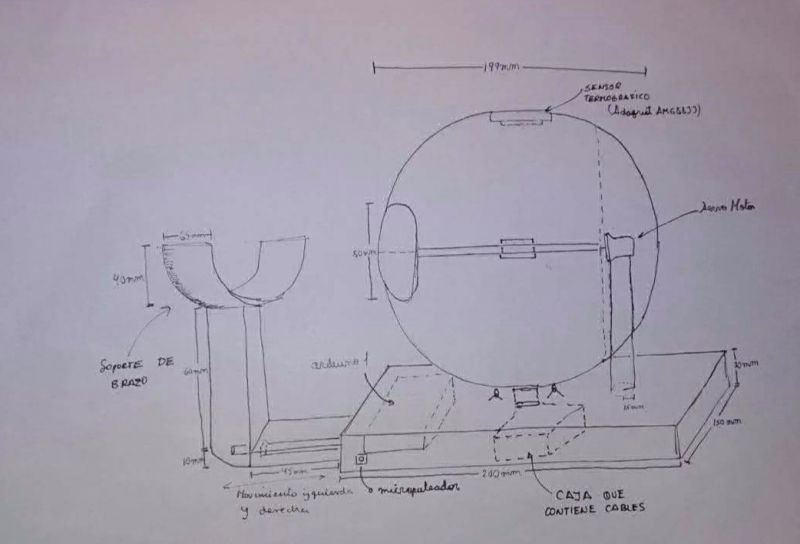 199mm
SENSOR
TERMOGRAFICO
(Adafruit AMG8833)
Servo Motor
65mm
40mm
50mm
SOPORTE DE
BRAZO
60mm
arduino 1
30mm
15mm
150mm
10mm
45mm
200mm
Movimiento izquierda
y derecha
micropulsador
CAJA QUE
CONTIENE CABLES